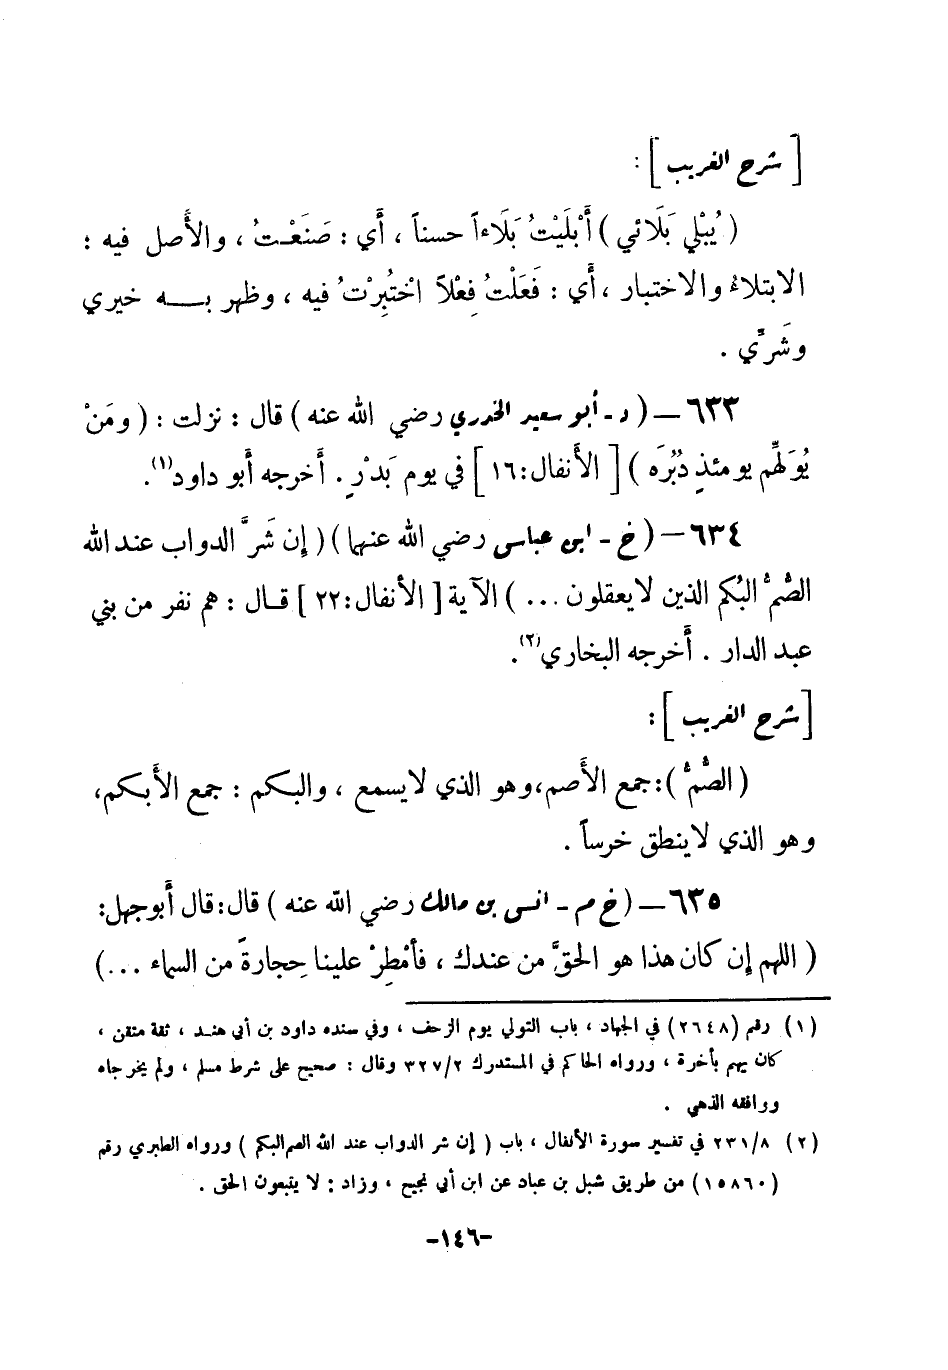 [ شرح الغريب ] :
( يُبْلي بَلَائي ) أَبْلَيْتُ بَلَاءاً حسناً ، أَي : صَنَعْتُ ، والأَصل فيه :
الابتلاءُ والاختبار ، أَي : فَعَلْتُ فِعْلاً اخْتُبِرْتُ فيه ، وظهر بــه خيري
وشَرِّي .
٦٣٣ – ( د - أبو سعيد الخدري رضي الله عنه ) قال : نزلت : ( ومَنْ
يُوَلِّهم يومئذٍ دُبُرَه ) [ الأَنفال:١٦ ] في يوم بَدْرٍ . أَخرجه أَبو داود(١).
٦٣٤ – ( خ - ابن عباس رضي الله عنهما ) ( إِن شَرَّ الدواب عند الله
الصُّمُّ البُكم الذين لا يعقلون ... ) الآية [ الأَنفال:٢٢ ] قــال : هم نفر من بني
عبد الدار . أَخرجه البخاري(٢).
[ شرح الغريب ] :
( الصُّمُّ ): جمع الأَصم، وهو الذي لا يسمع ، والبكم : جمع الأَبكم،
وهو الذي لا ينطق خرساً .
٦٣٥ – ( خ م - انس بن مالك رضي الله عنه ) قال: قال أَبو جهل:
( اللهم إِن كان هذا هو الحقَّ من عندك ، فأَمْطِرْ علينا حِجارةً من السماء ... )
(١) رقم (٢٦٤٨) في الجهاد ، باب التولي يوم الزحف ، وفي سنده داود بن أبي هند ، ثقة متقن ،
كان يهم بأخرة ، ورواه الحاكم في المستدرك ٣٢٧/٢ وقال : صحيح على شرط مسلم ، ولم يخرجاه
ووافقه الذهبي .
(٢) ٢٣١/٨ في تفسير سورة الأنفال ، باب ( إن شر الدواب عند الله الصم البكم ) ورواه الطبري رقم
(١٥٨٦٠) من طريق شبل بن عباد عن ابن أبي نجيح ، وزاد : لا يتبعون الحق .
-١٤٦-